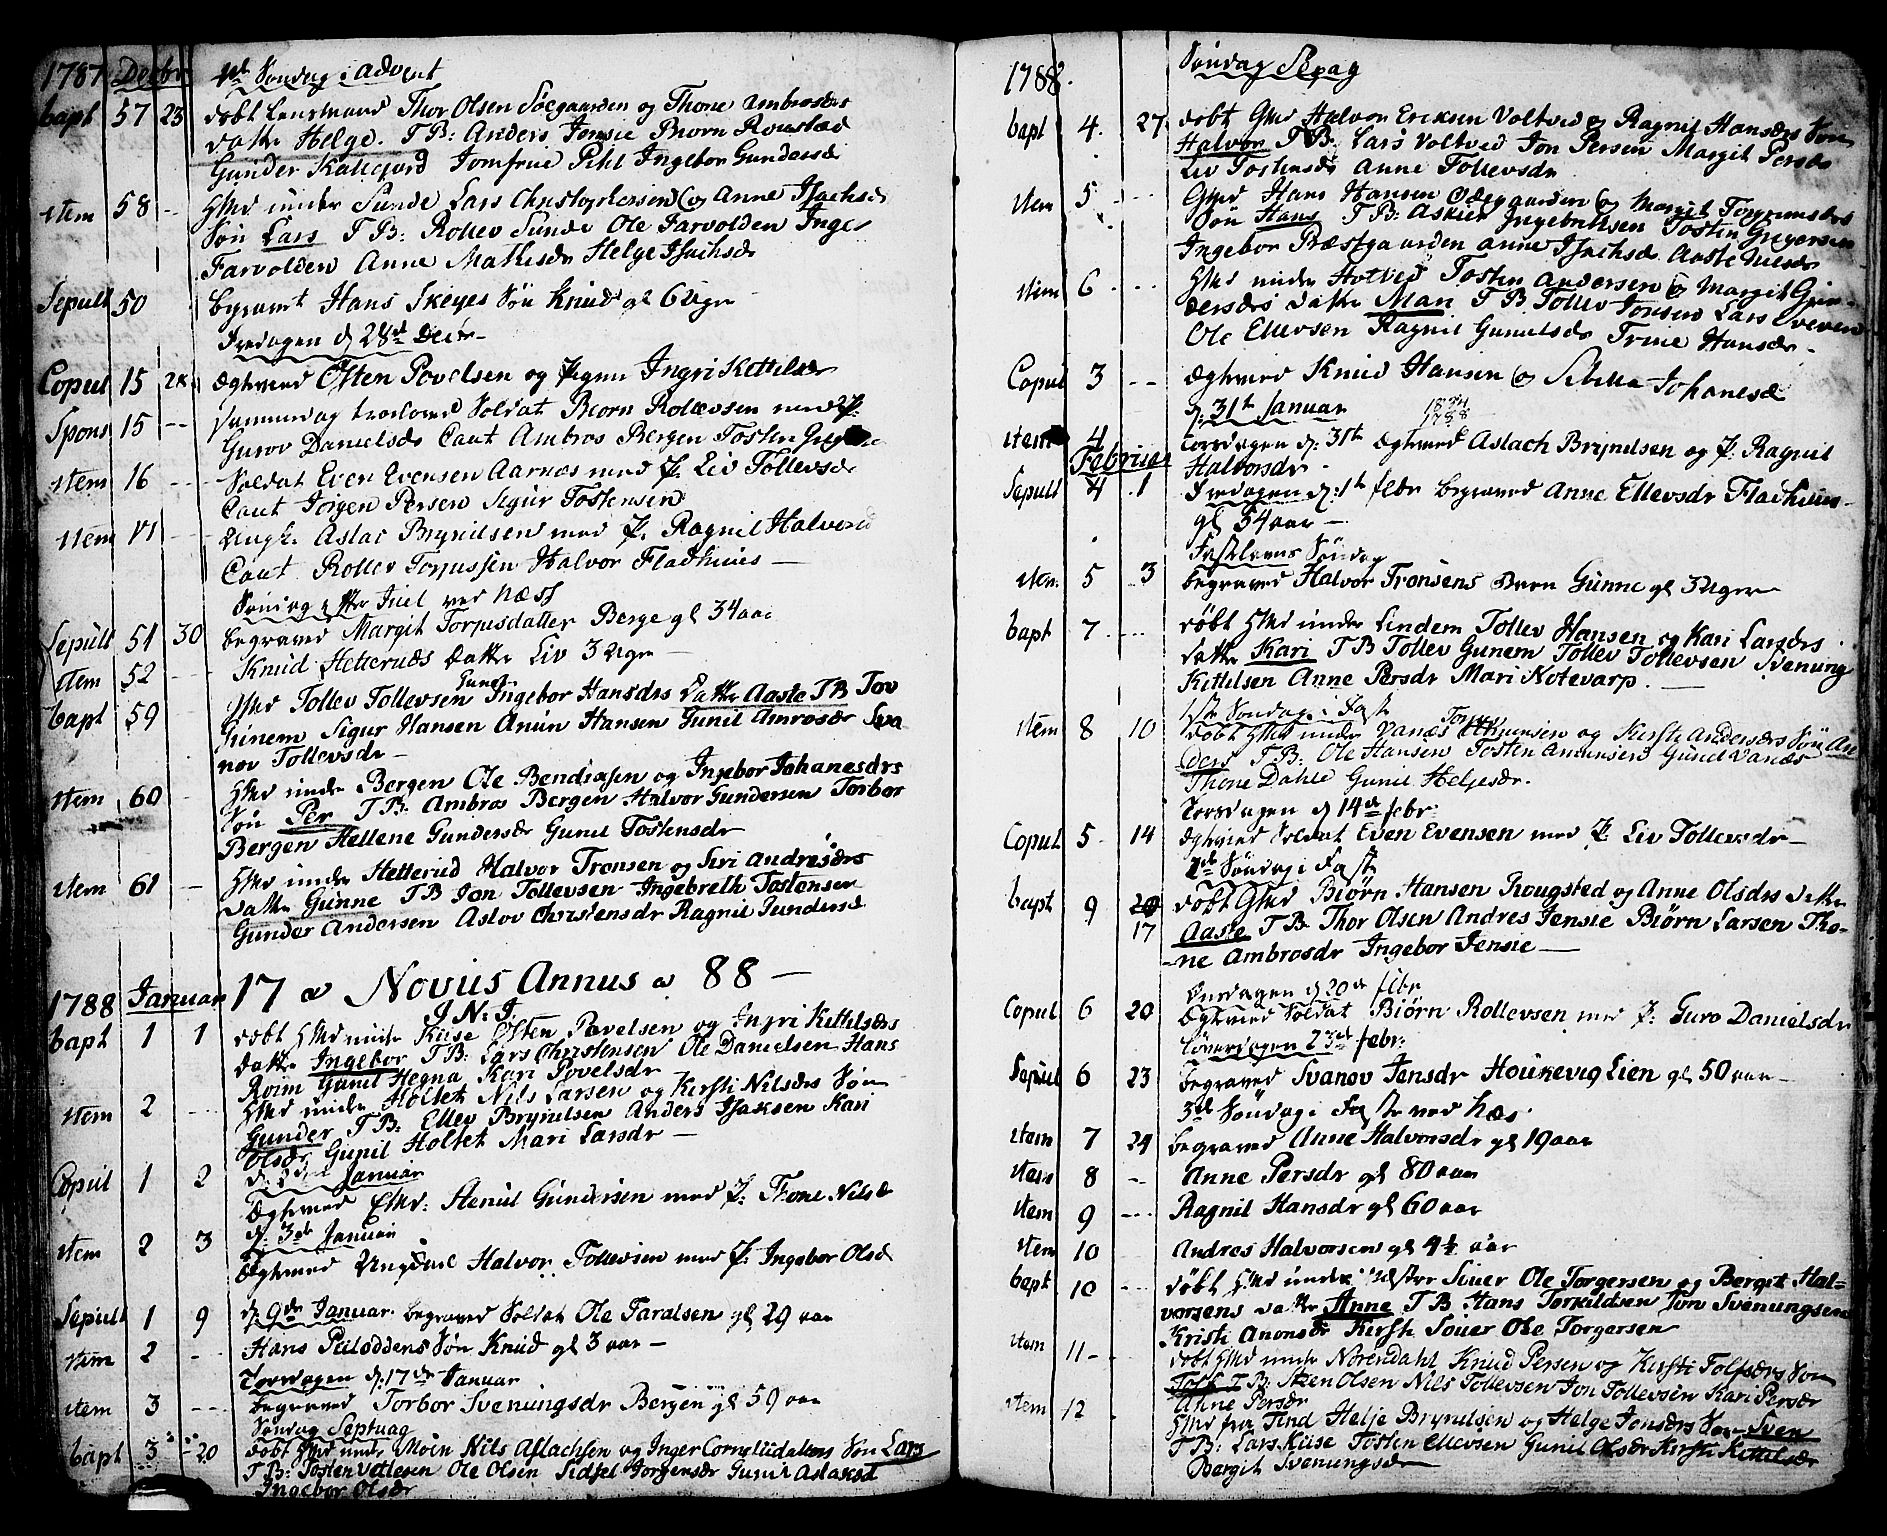 1787 Decbr 4de Søndag i Advent
bapt 57 23 døbt Lensmand Thor Olsen Søegaarden og Thone Ambrosdr
datter Helge. T B: Anders Jensie Biørn Roustad
Gunder Kallegord Jomfrue Pihl Ingebor Gundersdr
item 58 -- Ghd under Sunde Lars Christophersen og Anne Isachsdr
Søn Lars T B: Rollev Sunde Ole Farvolden Inger
Farvolden Anne Mathisdr Helge Isachsdr
Sepult 50 begravet Hans Skeyes Søn Knud gl 6 Uger
Fredagen d 28de Decbr
Copul 15 28 Ægteviet Østen Povelsen og Pigen Ingri Kettilsdr
Spons 15 -- samme dag trolovet Soldat Biorn Rollevsen med P:
Gurov Danielsdr Caut Ambros Bergen Tosten
item 16 -- Soldat Even Evensen Aarnæs med P. Liv Tollevsdr
Caut Jørgen Persen Sigur Tostensen
item 17 -- Ungk. Aslac Brynilsen med P. Ragnil Halvorsd
Caut. Rollev Torjussen Halvor Fladhuus —
Søndag efter Juel ved Næss
Sepult 51 30 begravet Margit Torjusdatter Berge gl 34 aar
item 52 -- Knud Hetteruds datter Liv 3 Uger —
bapt 59 Ghd Tollev Tollevsen Ingebor Hansdrs datter Aaste T B Tov
Gunem Sigur Hansen Anun Hansen Gunil Amrosdr Sva
nov Tollevsdr —
item 60 Ghd under Bergen Ole Bendixsen og Ingebor Johanesdrs
Søn Per T B: Ambros Bergen Halvor Gundersen Torbor
Bergen Hellene Gundersdr Gunil Tostensdr
item 61 - Ghd under Hetterud Halvor Tronsen og Siri Andresdrs
datter Gunne T B Jon Tollevsen Ingebreth Tostensen
Gunder Andersen Aslov Christensdr Ragnil Gundersd
1788 Januar 17 Novus Annus 88 —
J. N. J.
bapt 1 1 døbt Ghd under Kiise Østen Povelsen og Ingri Kittelsdrs
datter Ingebor T B: Lars Christensen Ole Danielsen Hans
Roim Gunil Hegna Kari Povelsdr
item 2 --- Ghd under Holtet Nils Larsen og Kirsti Nilsdrs Søn
Gunder T B: Ellev Brynilsen Anders Isaksen Kari
Olsdr Gunil Holtet Mari Larsdr —
d: 2de Januar
Copul 1 2 Ægteviet Ghd: Stenul Gundersen med P: Thone Nilsdr
d: 3de Januari
item 2 3 Ægteviet Ungkarl Halvor Tollevsen med P: Ingebor Olsd
Sepult 1 9 d: 9de Januar. begravet Soldat Ole Taralsen gl 29 aar
item 2 - Hans Peiloddens Søn Knud gl 3 aar —
Torsdagen d: 17de Januar
item 3 --- begravet Torbor Svenungsdr Bergen gl 59 aar
Søndag Septuag
bapt 3 20 døbt Ghd under Moen Nils Aslachsen og Inger Corneliidatters Søn Lars
T B: Tosten Vetlesen Ole Olsen Sidsel Jorgensdr Gunil Aslaksd
Ingebor Olsdr
1788. Søndag Sexag
bapt 4. 27 døbt Ghd Halvor Eriksen Voltved og Ragnil Hansdrs Søn
Halvor T B: Lars Voltved Jon Persen Margit Persdr
Liv Tostensdr Anne Tollevsdr
item 5 --- Ghd Hans Hansen Ødegaarden og Margit Torgrimsdrs
Søn Hans T B: Askier Ingebrethsen Tosten Gregersen
Ingebor Præstgaarden Anne Isachsd. Aaste
item 6 --- Ghd under Holtved Tosten Andersen og Margit Gun-
dersdrs datter Mari T B Tollev Jonsen Lars Sveven
Ole Ellevsen Ragnil Gunulsdr Trine Hansdr -
Copul 3 -- Ægteviet Knud Hansen og Sibilla Johanesd
d: 31te Januar 1788
item 4 Torsdagen d: 31te Ægteviet Aslach Brynilsen og P: Ragnil
Februar Halvorsdr -
Sepult 4 1 Fredagen d: 1te febr begravet Anne Ellevsdr Fladhuus-
gl 54 aar —
Fastelavns Søndag
item 5 3 begravet Halvor Tronsens Barn Gunne gl 3 Uger
bapt 7 --- døbt Ghd under Lindem Tollev Hansen og Kari Larsdrs
datter Kari T B Tollev Gunem Tollev Tollevsen Svenung
Kittilsen Anne Persdr Mari Notevarp. —
1ste Søndag i Faste
item 8 10 døbt Ghd under Vanæs og Kirsti Andersdrs Søn An
ders T B: Ole Hansen Tosten Amunsen Gunil Vanæs
Thone Dahle Gunil Helgesdr.
Torsdagen d 14de febr:
Copul 5 14 Ægteviet Soldat Even Evensen med P: Liv Tollevsdr —
2de Søndag i Faste
bapt 9 17 døbt Ghd Biørn Hansen Rougsted og Anne Olsdrs datter
Aaste T B: Thor Olsen Andres Jensie Biørn Larsen Tho-
ne Ambrosdr Ingebor Jensie —
Onsdagen d 20de febr
Copul 6 20 Ægteviet Soldat Biørn Rollevsen med P: Guro Danielsdr
Løverdagen 23de febr:
Sepul 6 23 begravet Svanov Jensdr Houkevig Lien gl 50 aar —
3de Søndag i Faste ved Næs
item 7 24 begravet Anne Halvorsdr gl 19 aar
item 8 -- Anne Persdr gl 80 aar
item 9 --- Ragnil Hansdr gl 60 aar
item 10 Andres Halvorsen gl 4½ aar
bapt 10 -- døbt Ghd under Vestre Siuer Ole Torgersen og Bergit Hal-
vorsens datter Anne T B Hans Torkildsen Jøro Svenungsen
Kristi Anonsdr Kirsti Siuer Ole Torgersen
item 11 - døbt Ghd under Norendahl Knud Persen og Kirsti Tolfsdrs Søn
Tolf T B: Sten Olsen Nils Tollevsen Jon Tollevsen Kari Persdr
Anne Persdr
item 12 Ghd fra Tind Helje Brynilsen og Helge Jonsdrs Søn Sven
T B: Lars Kiise Tosten Ellevsen Gunil Olsdr Kirsti Kittilsdr
Bergit Svenungsdr